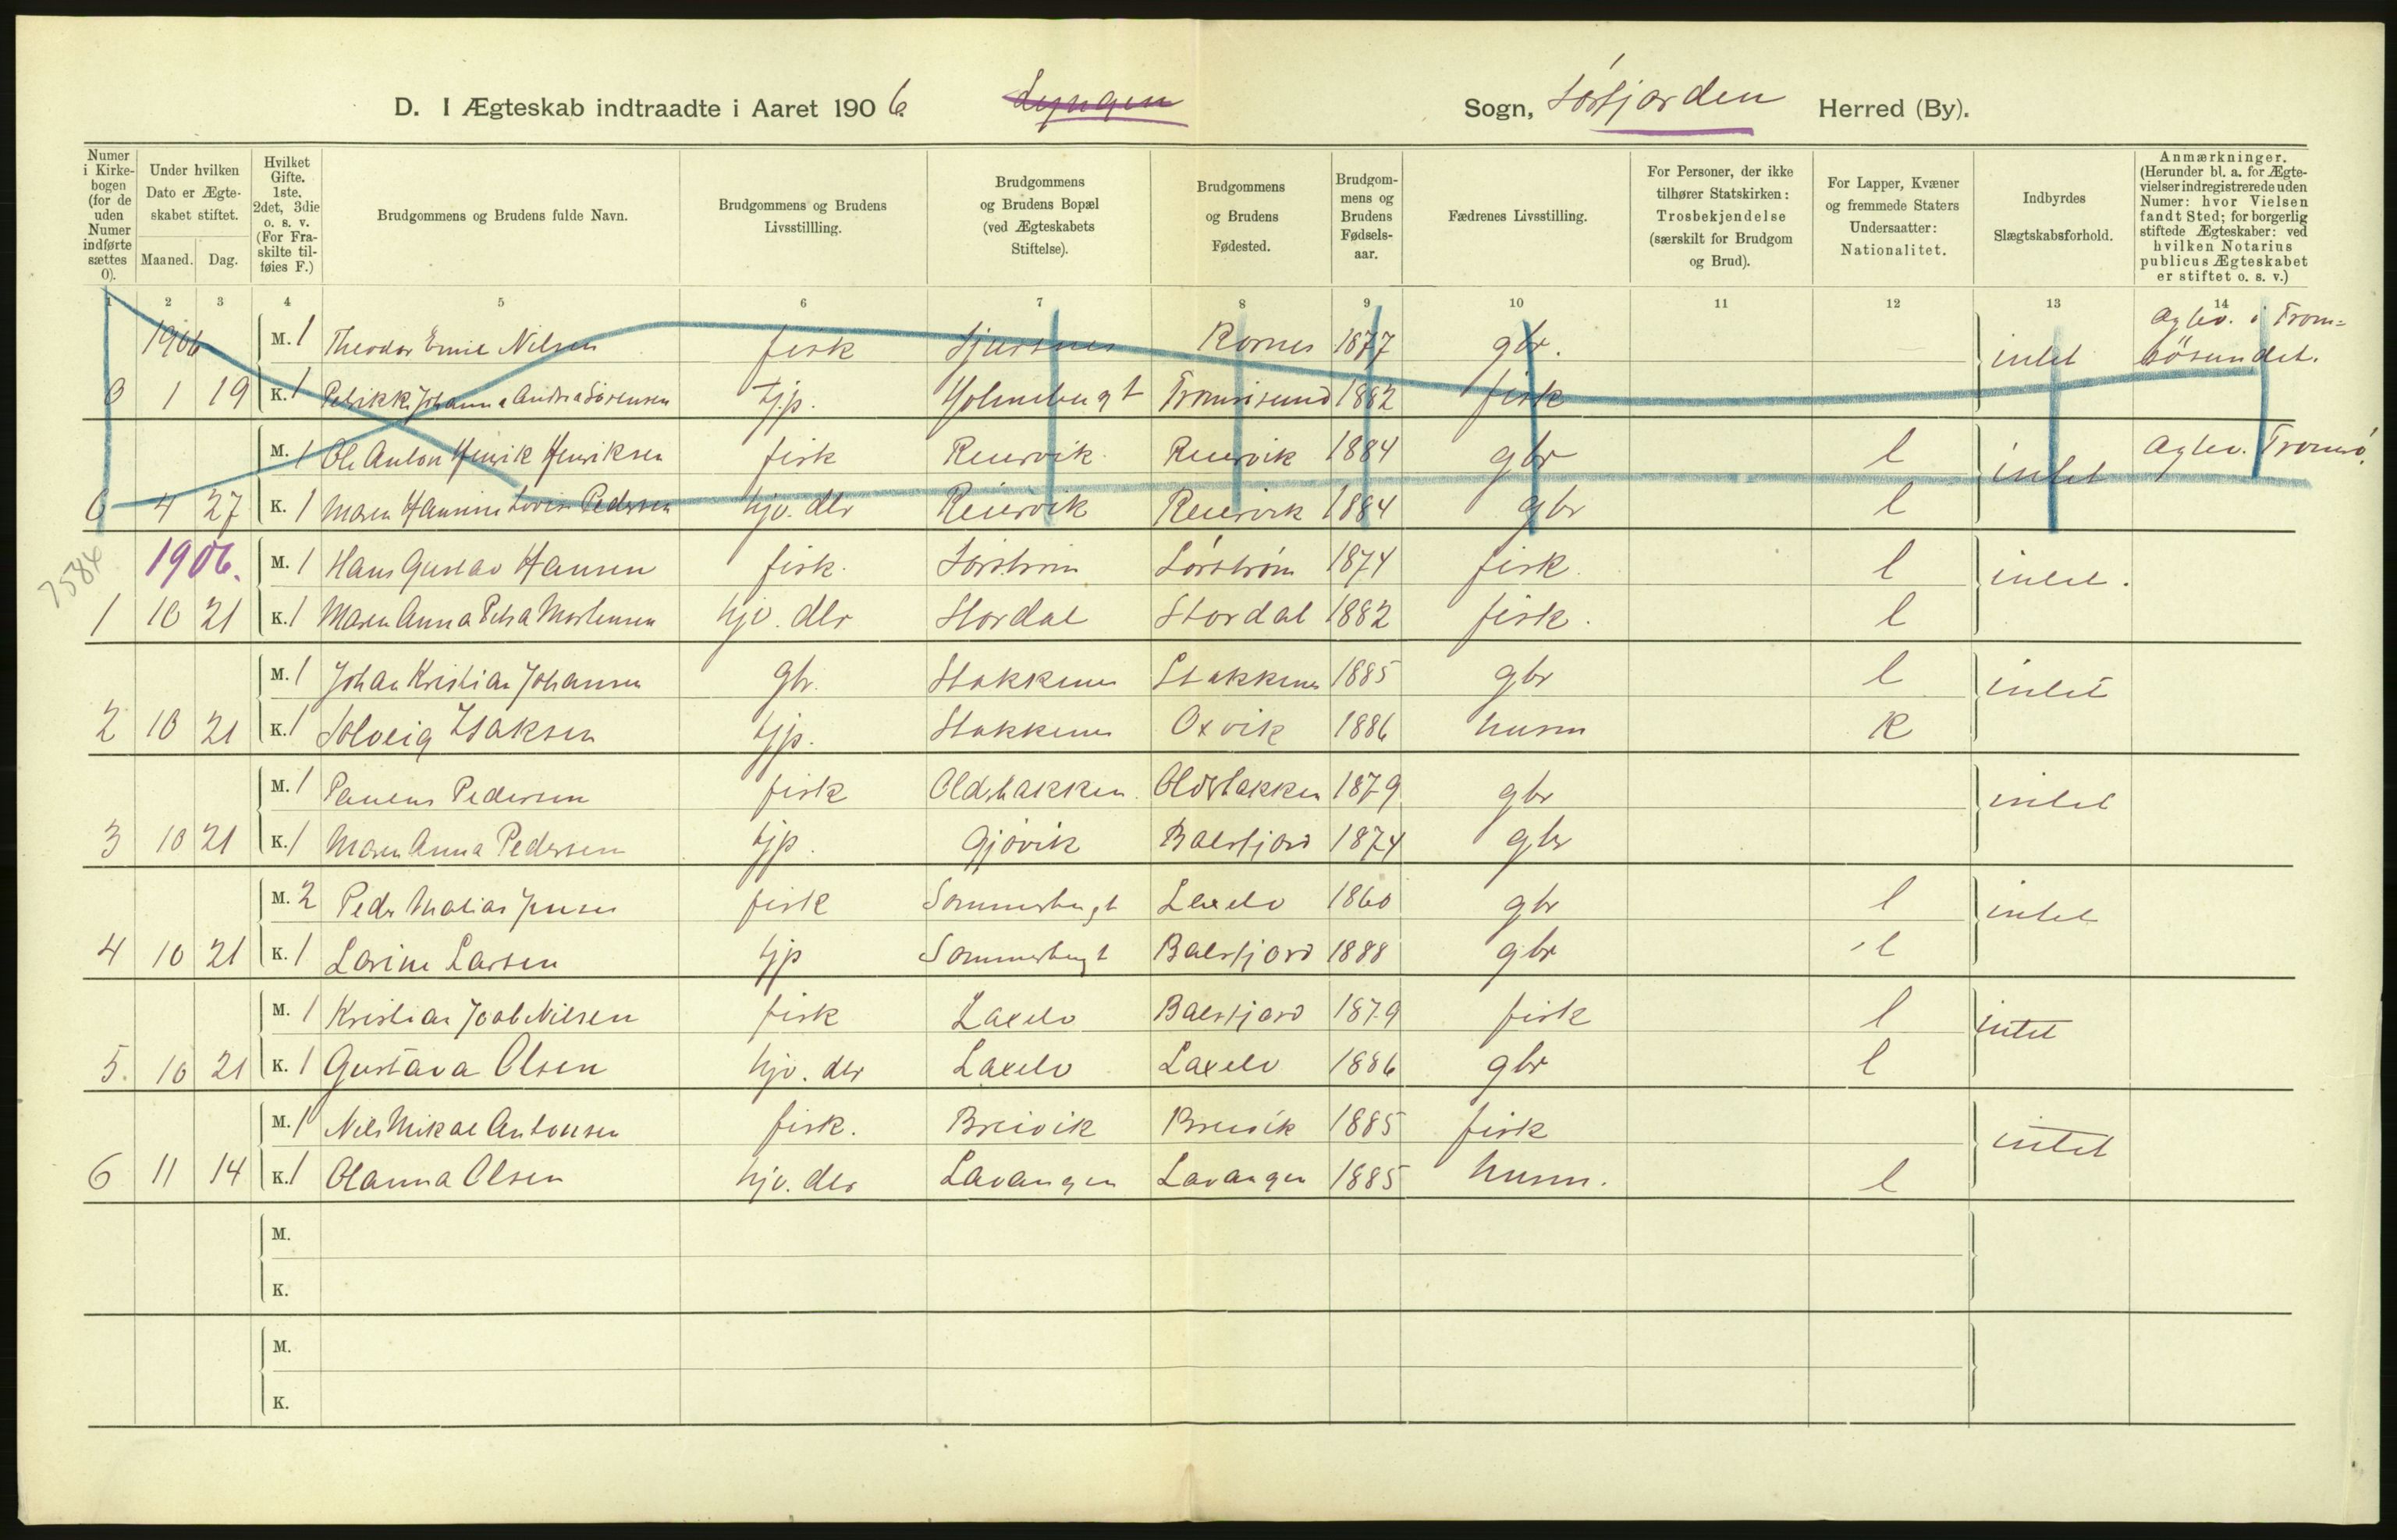 D. I Ægteskab indtraadte i Aaret 1906. Lyngen Sogn, Sørfjorden Herred (By).
Numer i Kirkebogen (for de uden Numer indførte sættes 0).
Under hvilken Dato er Ægteskabet stiftet.
Maaned. Dag.
Hvilket Gifte. 1ste, 2det, 3die o. s. v. (For Fraskilte tilføies F.)
Brudgommens og Brudens fulde Navn.
Brudgommens og Brudens Livsstillling.
Brudgommens og Brudens Bopæl (ved Ægteskabets Stiftelse).
Brudgommens og Brudens Fødested.
Brudgommens og Brudens Fødselsaar.
Fædrenes Livsstilling.
For Personer, der ikke tilhører Statskirken: Trosbekjendelse (særskilt for Brudgom og Brud).
For Lapper, Kvæner og fremmede Staters Undersaatter: Nationalitet.
Indbyrdes Slægtskabsforhold.
Anmærkninger. (Herunder bl. a. for Ægtevielser indregistrerede uden Numer: hvor Vielsen fandt Sted; for borgerlig stiftede Ægteskaber: ved hvilken Notarius publicus Ægteskabet er stiftet o. s. v.)
1 2 3 4 5 6 7 8 9 10 11 12 13 14
1906 M. 1 Theodor Emil Nilsen fisk Sjursnes Kornes 1877 gbr. intet
0 1 19 K. 1 Johanna Andrea Sörensen tjp. Holmebugt Tromsösund 1882 fisk
M. 1 Ole Anton Henrik Henriksen fisk Reiervik Reiervik 1884 gbr l intet Tromsö.
0 4 27 K. 1 Maren Hannine Lovise Pedersen hjv. dtr Reiervik Reiervik 1884 gbr l
7584
1906. M. 1 Hans Gustav Hansen fisk. Sørstrøm Sørstrøm 1874 fisk. l intet.
1 10 21 K. 1 Maren Anna Petra Mortensen hjv. dtr Stordal Stordal 1882 fisk. l
M. 1 Johan Kristian Johansen gbr. Stakkenes Stakkenes 1885 gbr l intet
2 10 21 K. 1 Solveig Isaksen tjp. Stakkenes Oxvik 1886 husm K
M. 1 Paulus Pedersen fisk Oldstakken Oldstakken 1879 gbr intet
3 10 21 K. 1 Maren Anna Pedersen tjp. Gjövik Balsfjord 1874 gbr
M. 2 Peder Matias Jensen fisk Sommerbugt Laxelv 1860 gbr l intet
4 10 21 K. 1 Lorine Larsen tjp Sommerbugt Balsfjord 1888 gbr l
M. 1 Kristian Joab Nilsen fisk Laxelv Balsfjord 1879 fisk l intet
5. 10 21 K. 1 Gustava Olsen hjv. dtr Laxelv Laxelv 1886 gbr l
M. 1 Nils Mikal Antonsen fisk. Breivik Breivik 1885 fisk intet
6 11 14 K. 1 Olanna Olsen hjv. dtr Lavangen Lavangen 1885 husm. l
M.
K.
M.
K.